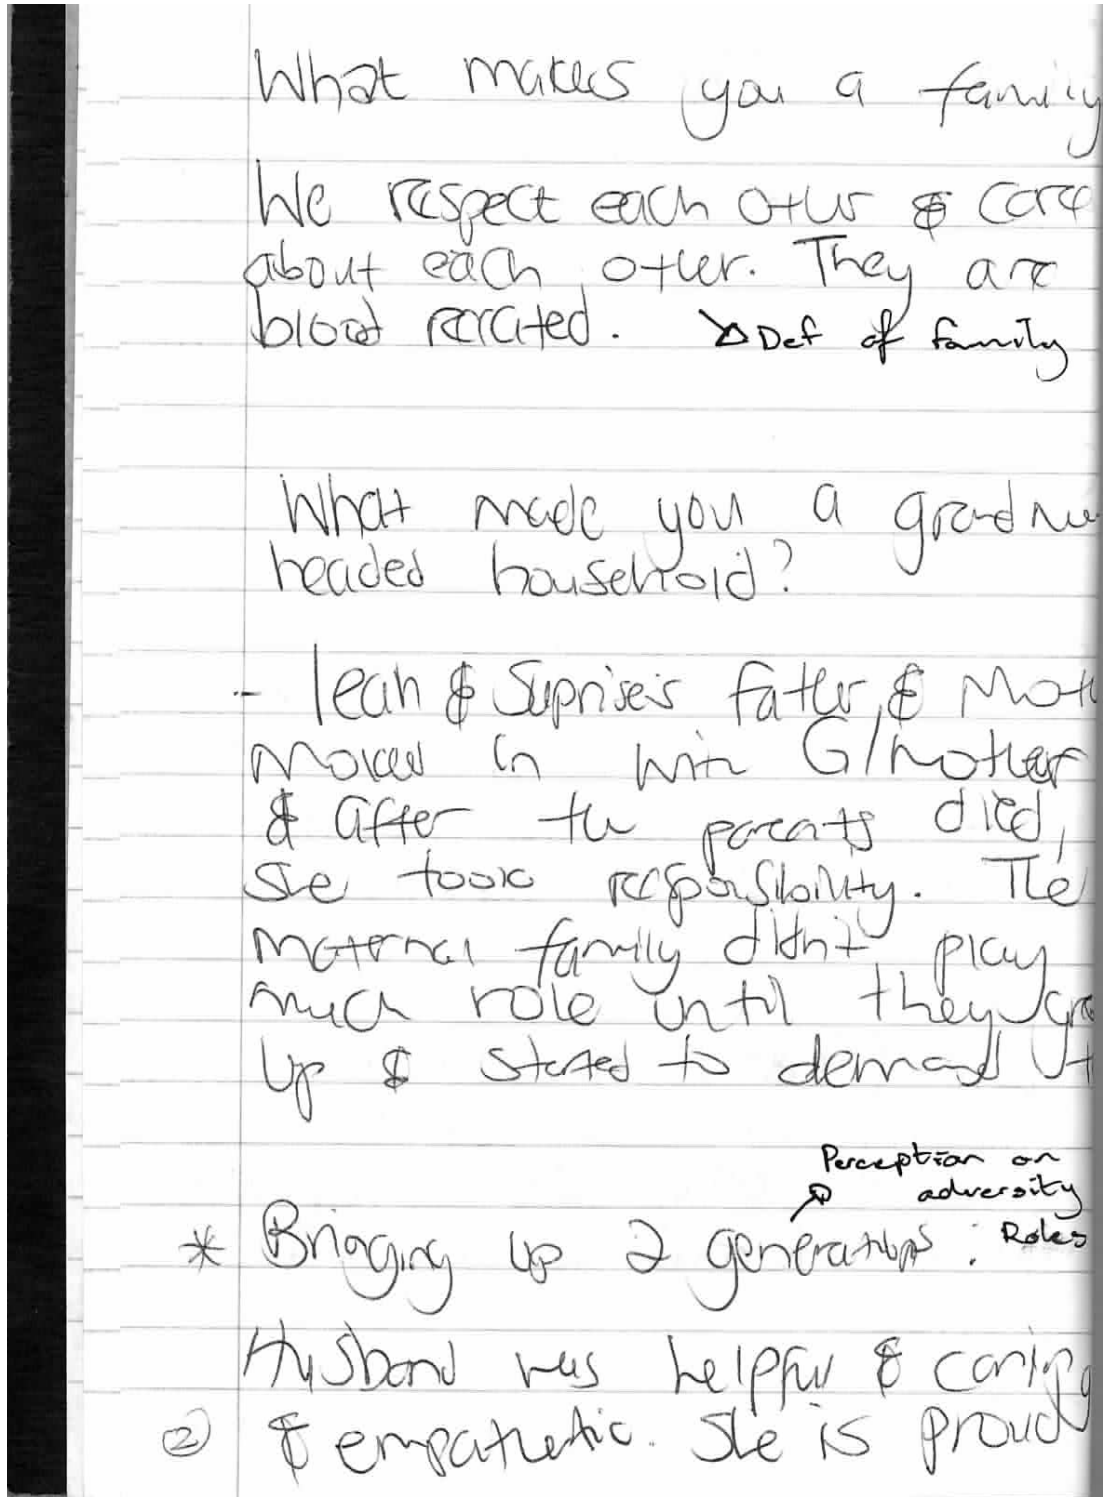 What makes you a family
We respect each other & care
about each other. They are
blood related. ↘ Def of family
What made you a
headed household?
- Leah & Suprise's father & Moth
moved in with G/mother
& after the parents died,
she took responsibility. The
maternal family didn't play
much role until they gr
up & started to demand t
Perception on
adversity
* Bringing up 2 generations : Roles
Husband was helpful & caring
② & empathetic. She is proud